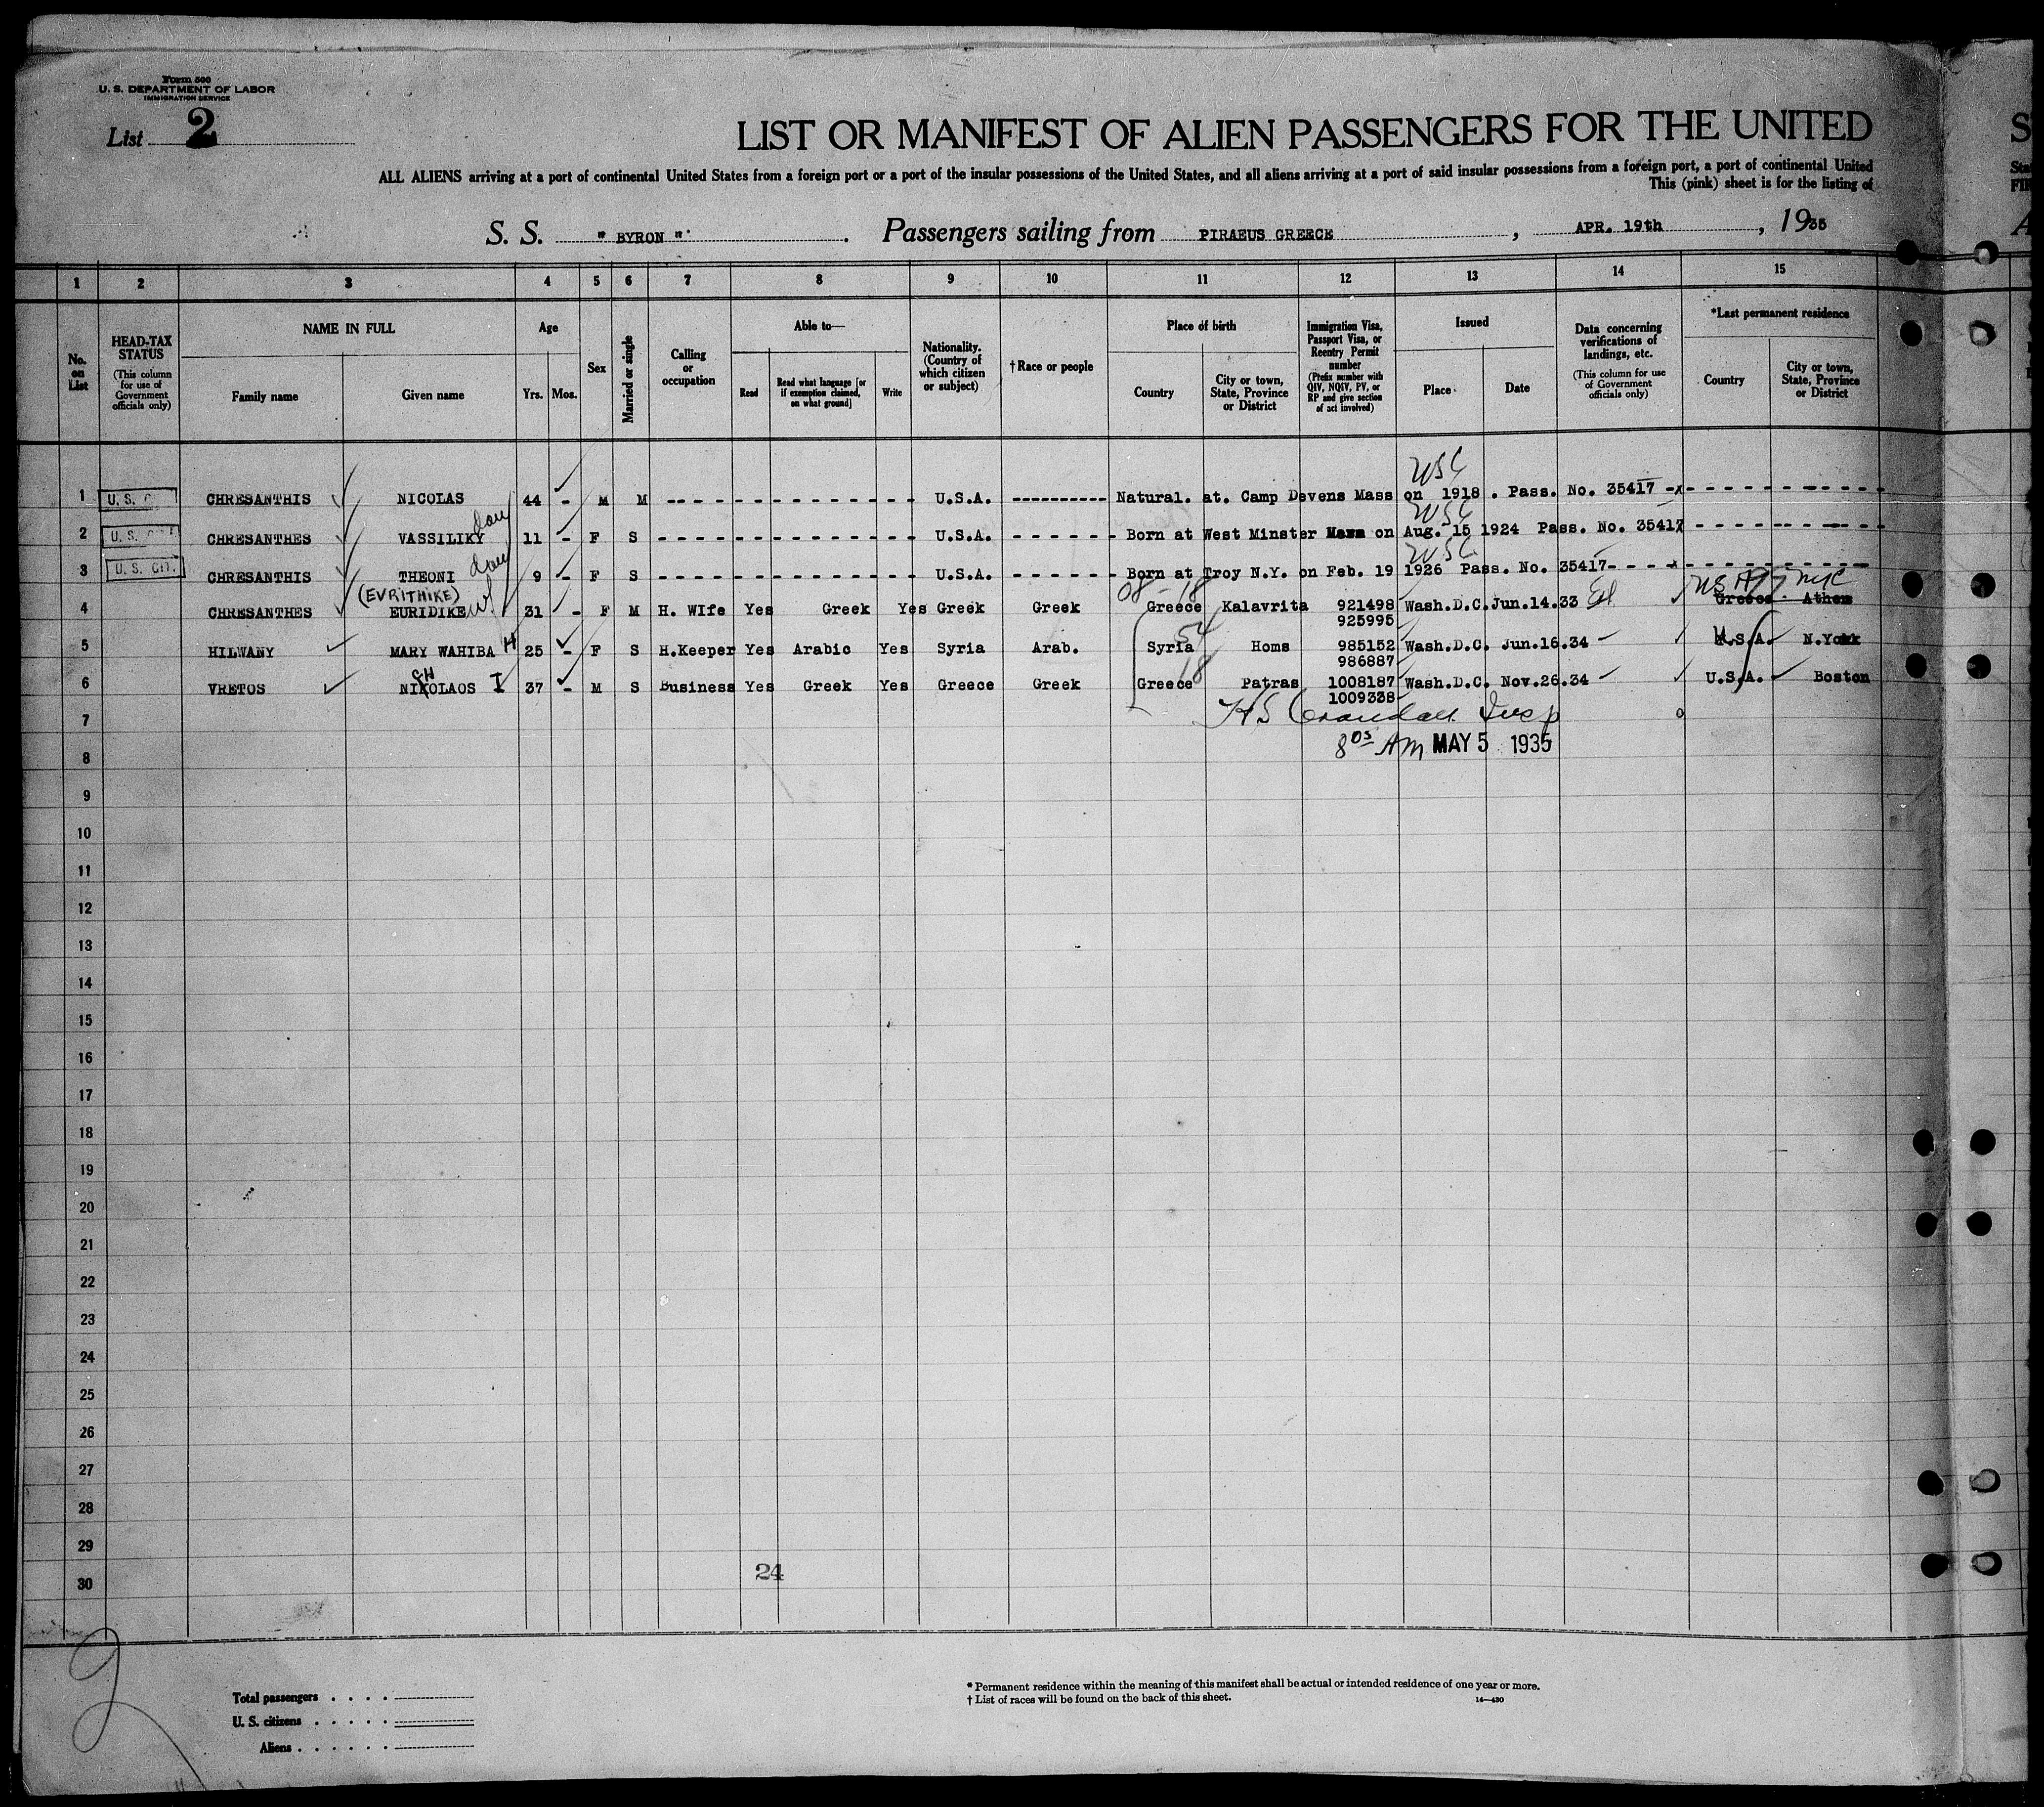 Form 500
U. S. DEPARTMENT OF LABOR
IMMIGRATION SERVICE
List 2
LIST OR MANIFEST OF ALIEN PASSENGERS FOR THE UNITED
ALL ALIENS arriving at a port of continental United States from a foreign port or a port of the insular possessions of the United States, and all aliens arriving at a port of said insular possessions from a foreign port, a port of continental United
This (pink) sheet is for the listing of
S. S. " BYRON ". Passengers sailing from PIRAEUS GREECE, APR. 19th, 1935
1 2 3 4 5 6 7 8 9 10 11 12 13 14 15
No. on List
HEAD-TAX STATUS (This column for use of Government officials only)
NAME IN FULL
Family name Given name
Age
Yrs. Mos.
Sex
Married or single
Calling or occupation
Able to—
Read Read what language [or if exemption claimed, on what ground] Write
Nationality. (Country of which citizen or subject)
†Race or people
Place of birth
Country City or town, State, Province or District
Immigration Visa, Passport Visa, or Reentry Permit number (Prefix number with QIV, NQIV, PV, or RP and give section of act involved)
Issued
Place Date
Data concerning verifications of landings, etc. (This column for use of Government officials only)
*Last permanent residence
Country City or town, State, Province or District
WSC
1 U. S. C CHRESANTHIS NICOLAS 44 - M M U.S.A. Natural. at. Camp Devens Mass on 1918 . Pass. No. 35417
dau WSC
2 U. S. CHRESANTHES VASSILIKY 11 - F S U.S.A. Born at West Minster Mass on Aug. 15 1924 Pass. No. 35417
dau WSC
3 U. S. CIT. CHRESANTHIS THEONI 9 - F S U.S.A. Born at Troy N.Y. on Feb. 19 1926 Pass. No. 35417
(EVRITHIKE) 08 - 18 NYC
4 CHRESANTHES EURIDIKE wf 31 - F M H. WIfe Yes Greek Yes Greek Greek Greece Kalavrita 921498 Wash.D.C. Jun.14.33 Greece Athens
925995
54
5 HILWANY MARY WAHIBA H 25 - F S H.Keeper Yes Arabic Yes Syria Arab. Syria Homs 985152 Wash.D.C. Jun.16.34 U.S.A. N.York
986887
CH 18
6 VRETOS NIKOLAOS I 37 - M S Business Yes Greek Yes Greece Greek Greece Patras 1008187 Wash.D.C. Nov.26.34 U.S.A. Boston
1009338
7 H S Crandall Insp
8 8 05 AM MAY 5 1935
9
10
11
12
13
14
15
16
17
18
19
20
21
22
23
24
25
26
27
28
29
24
30
Total passengers
U. S. citizens
Aliens
* Permanent residence within the meaning of this manifest shall be actual or intended residence of one year or more.
† List of races will be found on the back of this sheet.
14—430